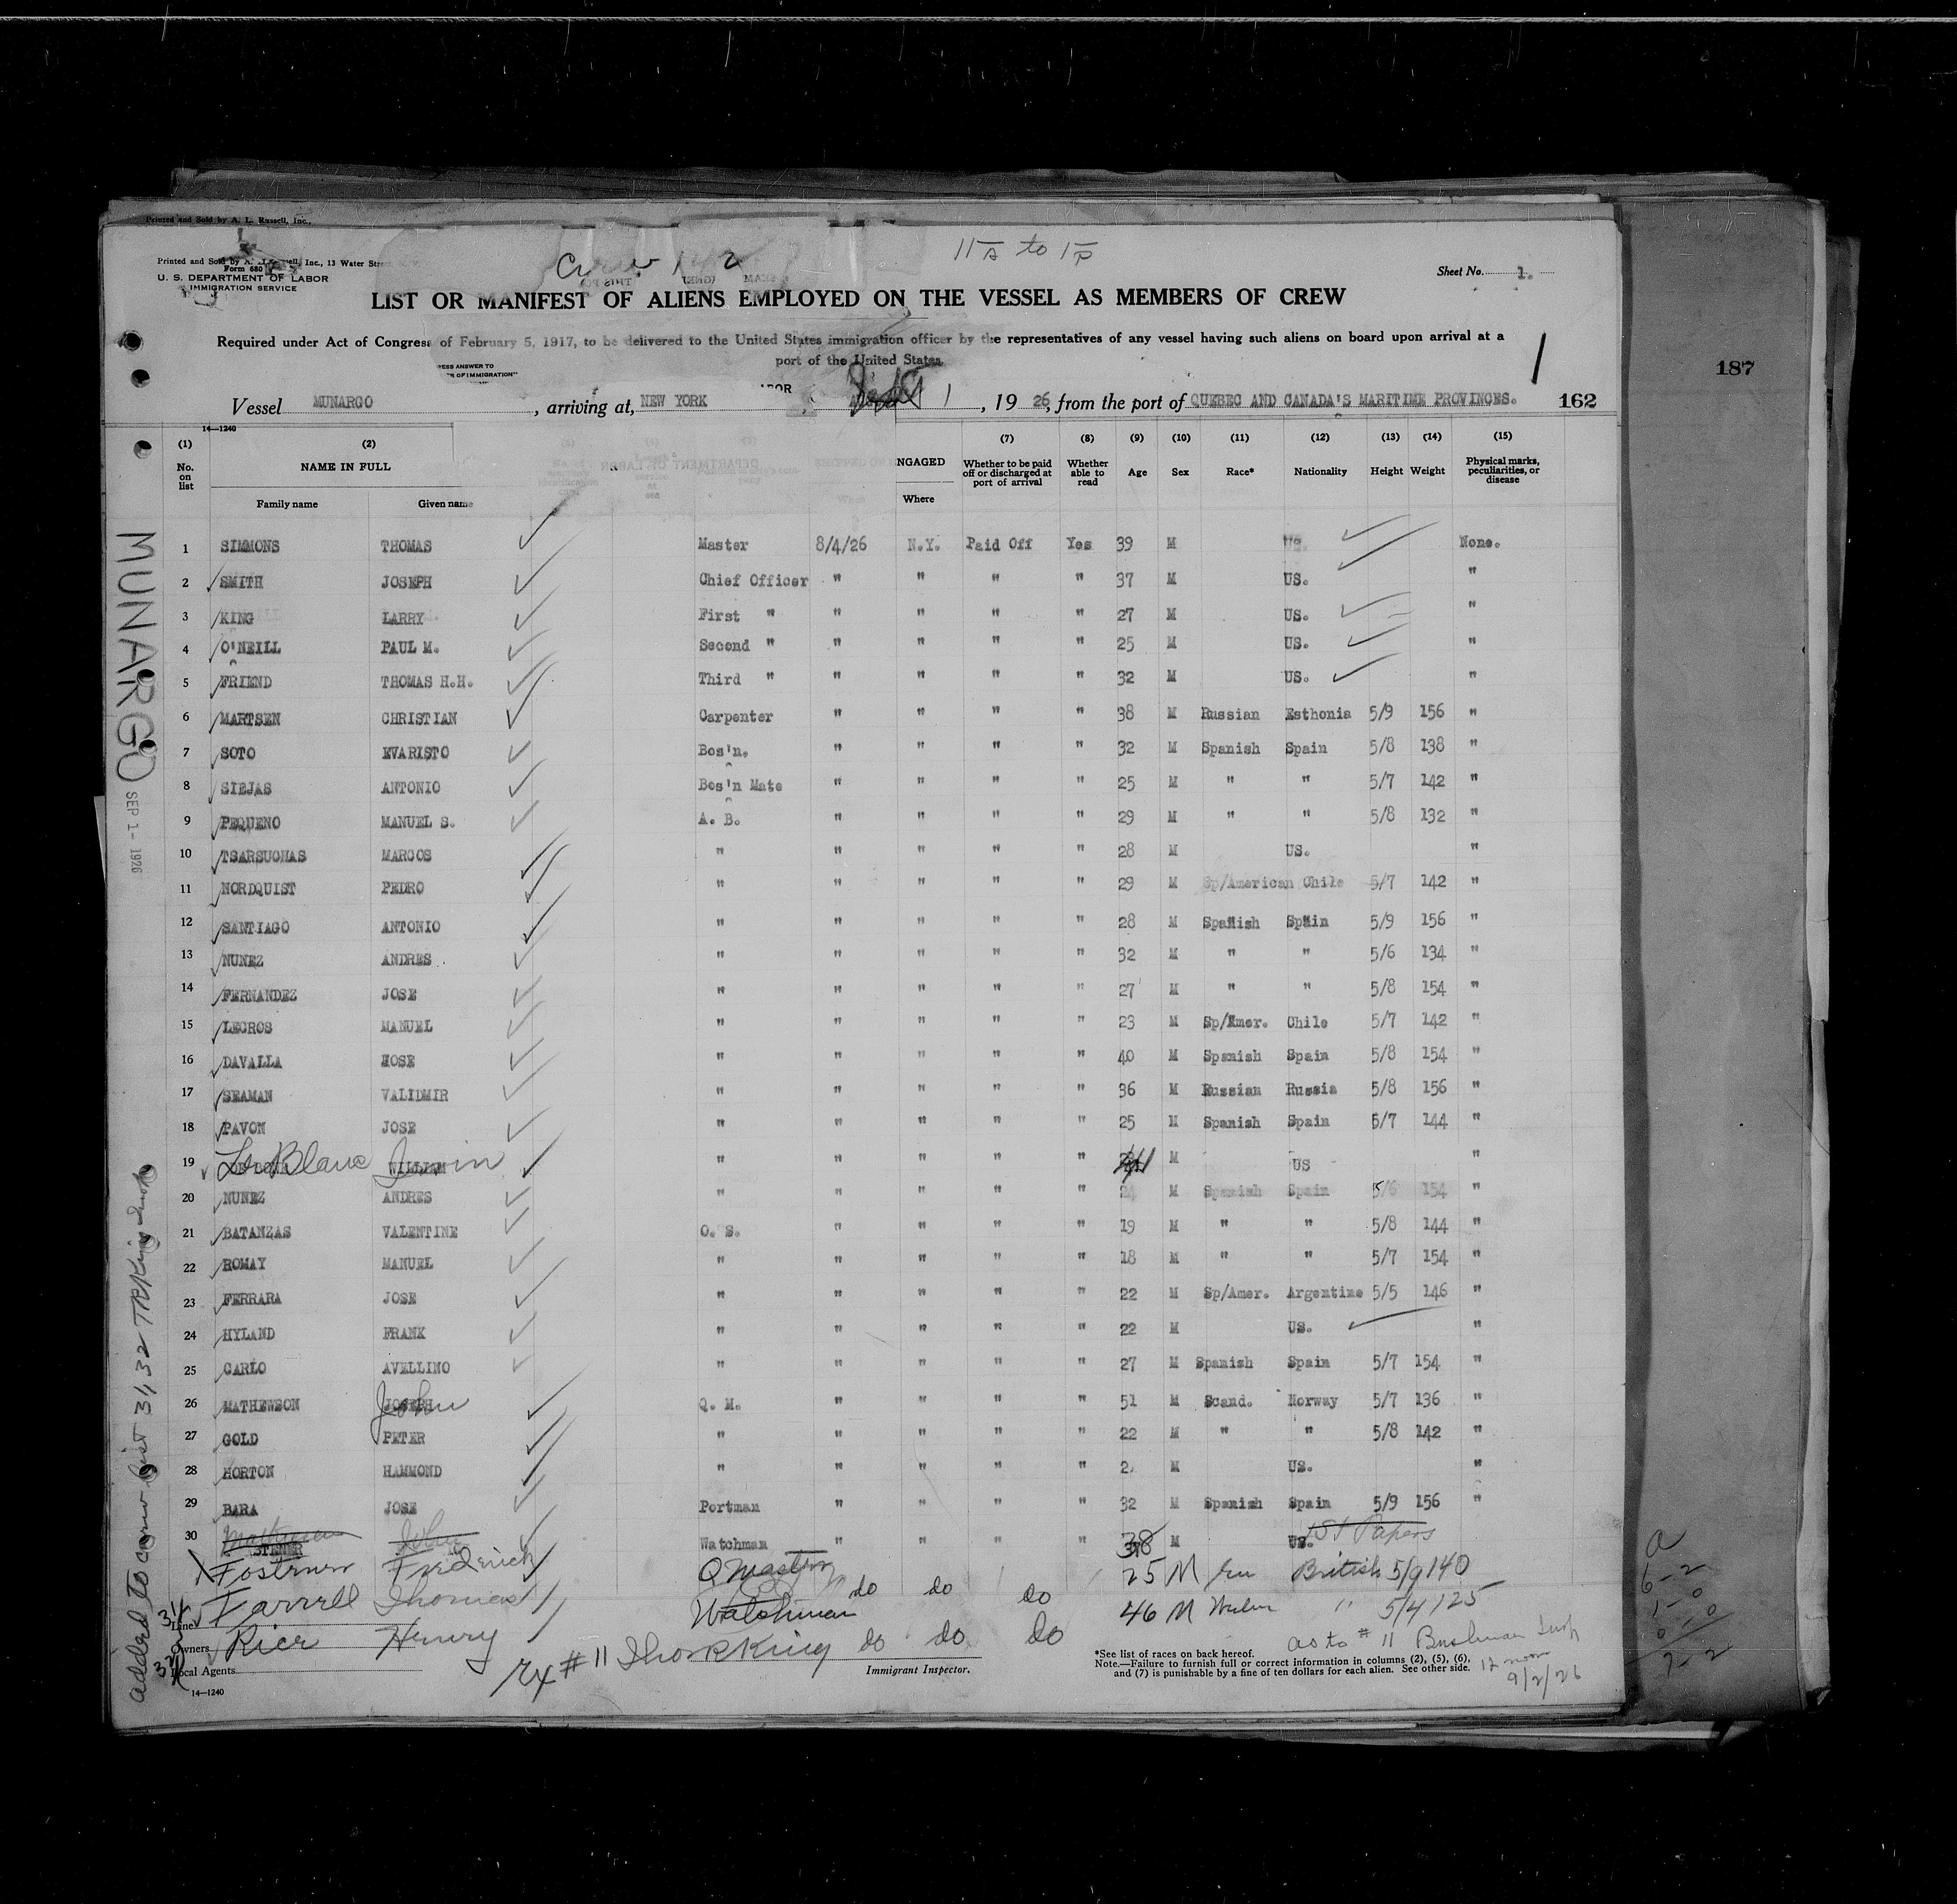 Printed and Sold by A. L. Russell, Inc.,
Crew 142
11 A to 1 P
Printed and Sold by A. L. Russell, Inc., 13 Water
Form 680
U. S. DEPARTMENT OF LABOR
IMMIGRATION SERVICE
Sheet No. 1.
LIST OR MANIFEST OF ALIENS EMPLOYED ON THE VESSEL AS MEMBERS OF CREW
Required under Act of Congress of February 5, 1917, to be delivered to the United States immigration officer by the representatives of any vessel having such aliens on board upon arrival at a
port of the United States
1
187
Vessel MUNARGO, arriving at, NEW YORK Sept 1, 19 26, from the port of QUEBEC AND CANADA'S MARITIME PROVINCES. 162
14—1240
(1) (2) (7) (8) (9) (10) (11) (12) (13) (14) (15)
No. on list NAME IN FULL NGAGED Whether to be paid off or discharged at port of arrival Whether able to read Age Sex Race* Nationality Height Weight Physical marks, peculiarities, or disease
Family name Given name Where
1 SIMMONS THOMAS Master 8/4/26 N.Y. Paid Off Yes 39 M US. None.
2 SMITH JOSEPH Chief Officer " " " " 37 M US. "
3 KING LARRY First " " " " " 27 M US. "
4 O'NEILL PAUL M. Second " " " " " 25 M US. "
5 FRIEND THOMAS H.H. Third " " " " " 32 M US. "
6 MARTSEN CHRISTIAN Carpenter " " " " 38 M Russian Esthonia 5/9 156 "
7 SOTO EVARISTO Bos'n. " " " " 32 M Spanish Spain 5/8 138 "
8 SIEJAS ANTONIO Bos'n Mate " " " " 25 M " " 5/7 142 "
9 PEQUENO MANUEL S. A. B. " " " " 29 M " " 5/8 132 "
10 TSARSUCHAS MARCOS " " " " " 28 M US. "
11 NORDQUIST PEDRO " " " " " 29 M Sp/American Chile 5/7 142 "
12 SANTIAGO ANTONIO " " " " " 28 M Spanish Spain 5/9 156 "
13 NUNEZ ANDRES " " " " " 32 M " " 5/6 134 "
14 FERNANDEZ JOSE " " " " " 27 M " " 5/8 154 "
15 LEGROS MANUEL " " " " " 23 M Sp/Amer. Chile 5/7 142 "
16 DAVALLA HOSE " " " " " 40 M Spanish Spain 5/8 154 "
17 SEAMAN VALIDMIR " " " " " 36 M Russian Russia 5/8 156 "
18 PAVON JOSE " " " " " 25 M Spanish Spain 5/7 144 "
19 LeBlanc Irwin WILLIAM " " " " " M US "
20 NUNEZ ANDRES " " " " " 24 M Spanish Spain 5/6 154 "
21 BATANZAS VALENTINE O. S. " " " " 19 M " " 5/8 144 "
22 ROMAY MANUEL " " " " " 18 M " " 5/7 154 "
23 FERRARA JOSE " " " " " 22 M Sp/Amer. Argentine 5/5 146 "
24 HYLAND FRANK " " " " " 22 M US. "
25 CARLO AVELLINO " " " " " 27 M Spanish Spain 5/7 154 "
26 MATHEWSON JOSEPH John Q. M. " " " " 51 M Scand. Norway 5/7 136 "
27 GOLD PETER " " " " " 22 M " " 5/8 142 "
28 HORTON HAMMOND " " " " " 2 M US. "
29 BARA JOSE Portman " " " " 32 M Spanish Spain 5/9 156 "
30 John Watchman " " " " 38 M US. 1st Papers "
Frederick 25 M British 5/9 140
31 Farrell Thomas Watchman do do do 46 M " 5/4 125
Line
32 Rice Henry do do do
Owners
Local Agents
14—1240
Rx # 11
Immigrant Inspector.
*See list of races on back hereof.
Note.—Failure to furnish full or correct information in columns (2), (5), (6),
and (7) is punishable by a fine of ten dollars for each alien. See other side.
as to # 11
12 noon
9/2/26
MUNARGO
SEP 1- 1926
added to crew list 31, 32
6-2
1-0
0-0
7-2